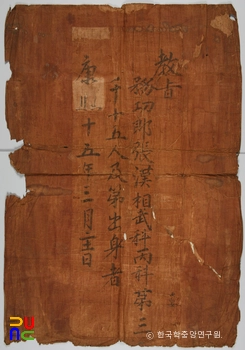 教旨
務功郎張漢相武科丙科第二
千十五人及第出身者
康熙十五年三月二十一日
ⓒ 한국학중앙연구원